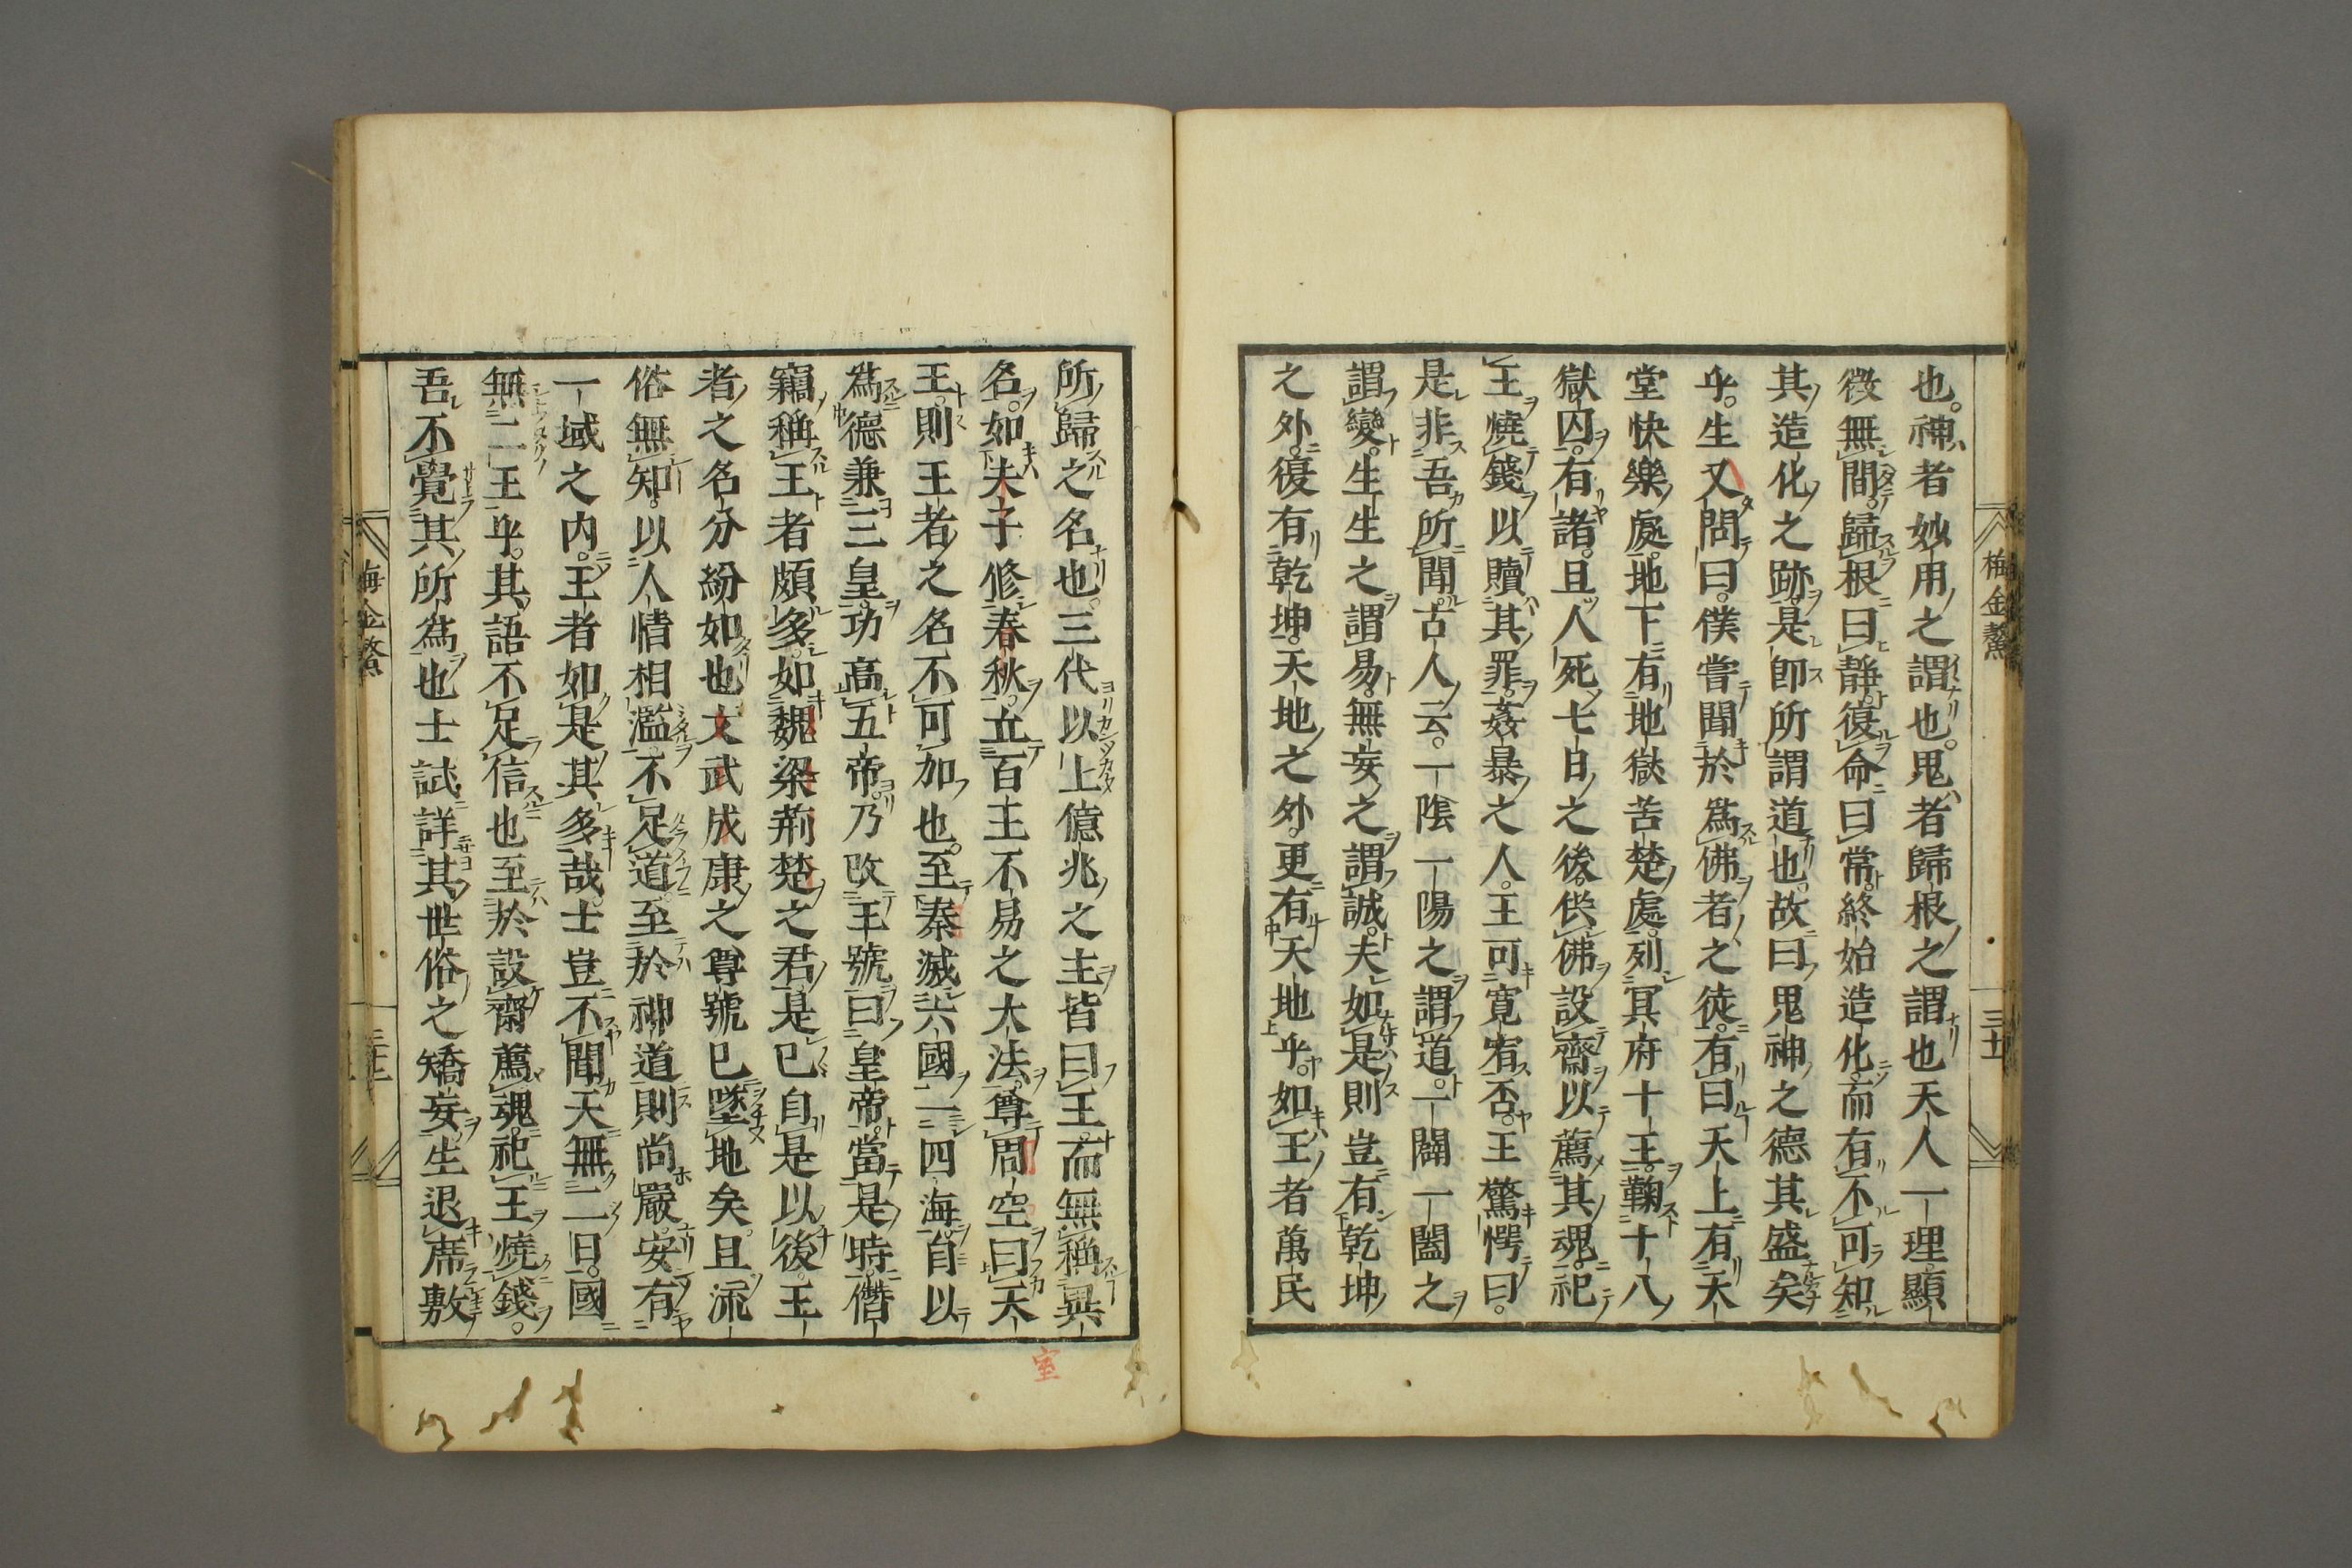 也。神者妙用之謂也。鬼者歸根之謂也天人一理。顯
微無間。歸根曰靜。復命曰常。終始造化。而有不可知
其造化之跡。是卽所謂道也。故曰鬼神之德其盛矣
乎。生又問曰。僕嘗聞於爲佛者之徒。有曰天上有天
堂快樂處。地下有地獄苦楚處。列冥府十王。鞠十八
獄囚。有諸。且人死七日之後。供佛設齋以薦其魂。祀
王燒錢以贖其罪。姦暴之人。王可寬宥否。王驚愕曰。
是非吾所聞。古人云。一陰一陽之謂道。一闢一闔之
謂變。生生之謂易。無妄之謂誠。夫如是則豈有乾坤
之外。復有乾坤。天地之外。更有天地乎。如王者萬民
所歸之名也。三代以上億兆之主。皆曰王。而無稱異
名。如夫子修春秋。立百王不易之大法。尊周室曰天
王。則王者之名不可加也。至秦滅六國一四海。自以
爲德兼三皇。功高五帝。乃改王號曰皇帝。當是時。僭
竊稱王者頗多。如魏梁荊楚之君。是已。自是以後。王
者之名分紛如也。文武成康之尊號已墜地矣。且流
俗無知。以人情相濫。不足道。至於神道則尚嚴。安有
一域之內。王者如是其多哉。士豈不聞天無二日。國
無二王乎。其語不足信也。至於設齋薦魂。祀王燒錢。
吾不覺其所爲也士試詳其世俗之矯妄。生退席敷
梅金鰲
三十一
梅金鰲
室